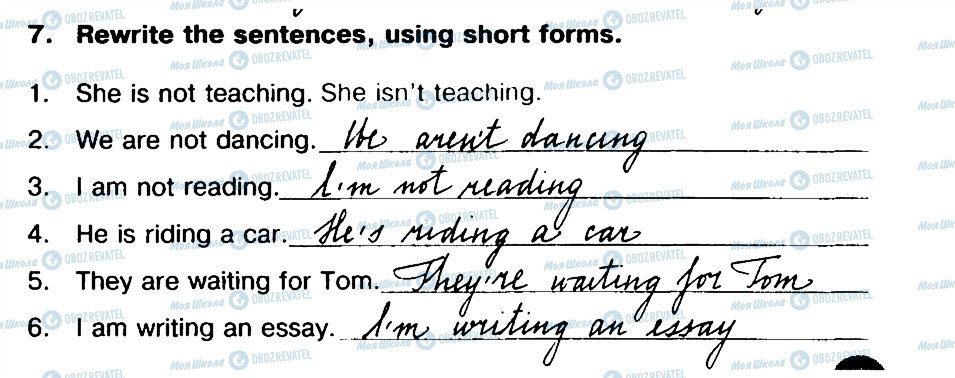 7. Rewrite the sentences, using short forms.
1. She is not teaching. She isn't teaching.
2. We are not dancing. We aren't dancing
3. I am not reading. I'm not reading
4. He is riding a car. He's riding a car
5. They are waiting for Tom. They're waiting for Tom
6. I am writing an essay. I'm writing an essay
МояШкола OBOZREVATEL